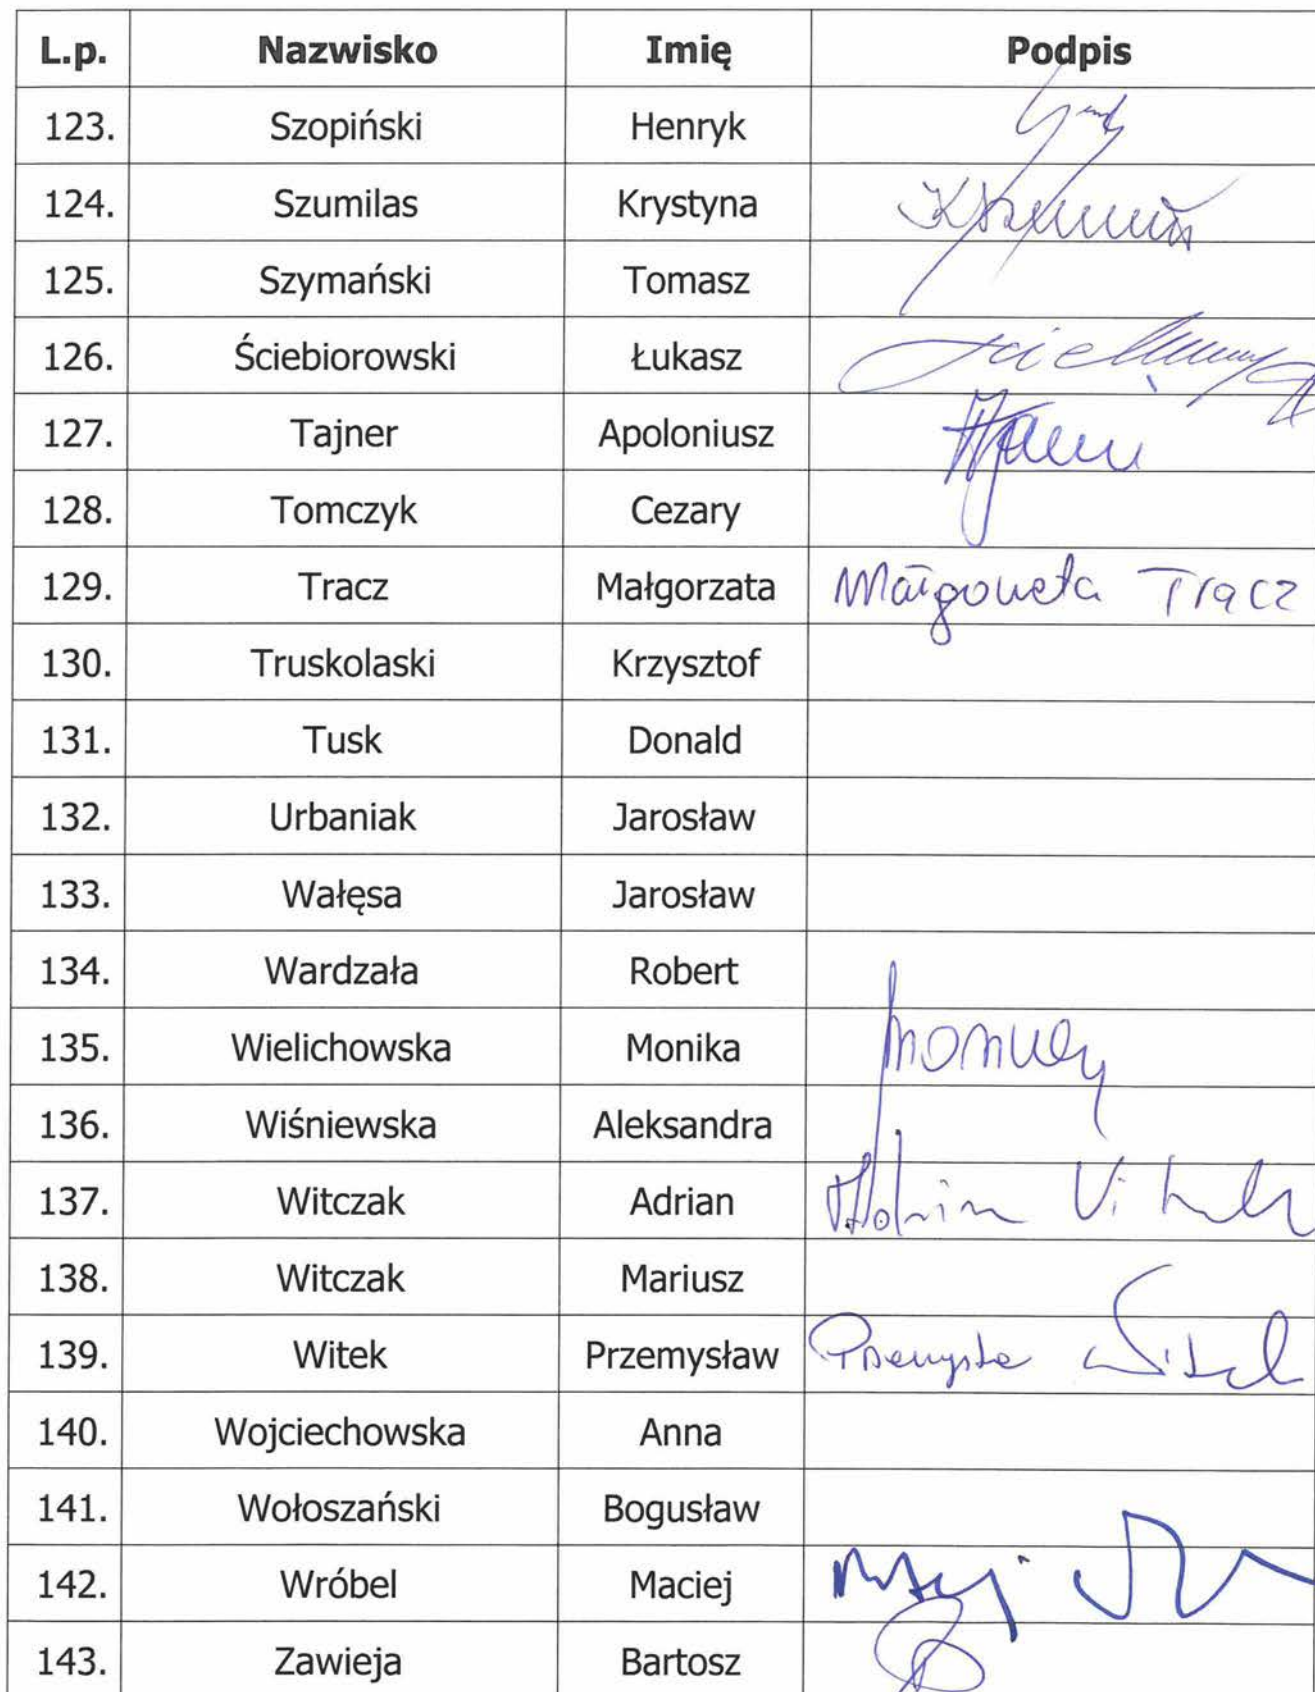 L.p. Nazwisko Imię Podpis
123. Szopiński Henryk
124. Szumilas Krystyna
125. Szymański Tomasz
126. Ściebiorowski Łukasz
127. Tajner Apoloniusz
128. Tomczyk Cezary
129. Tracz Małgorzata Małgorzata Tracz
130. Truskolaski Krzysztof
131. Tusk Donald
132. Urbaniak Jarosław
133. Wałęsa Jarosław
134. Wardzała Robert
135. Wielichowska Monika
136. Wiśniewska Aleksandra
137. Witczak Adrian
138. Witczak Mariusz
139. Witek Przemysław
140. Wojciechowska Anna
141. Wołoszański Bogusław
142. Wróbel Maciej
143. Zawieja Bartosz